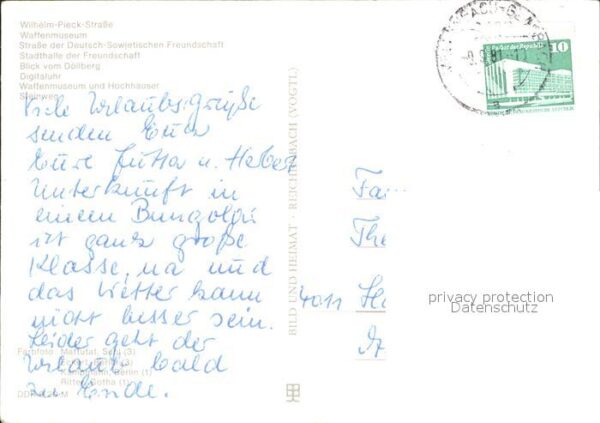 Wilhelm-Pieck-Straße
Waffenmuseum
Straße der Deutsch-Sowjetischen Freundschaft
Stadthalle der Freundschaft
Blick vom Döllberg
Digitaluhr
Waffenmuseum und Hochhäuser
Steinweg
Viele Urlaubsgrüße
senden Euch
Eure Jutta u.
Unterkunft in
einem Bungolow
ist ganz große
Klasse, na und
das Wetter kann
nicht besser sein.
Leider geht der
Urlaub bald
zu Ende.
Farbfoto: Mattutat, (3)
(3)
Kampmann, Berlin (1)
Ritter, Gotha (1)
BILD UND HEIMAT · REICHENBACH (VOGTL)
Palast der Republik
10
Fa
The
4011 Ha
privacy protection
Datenschutz